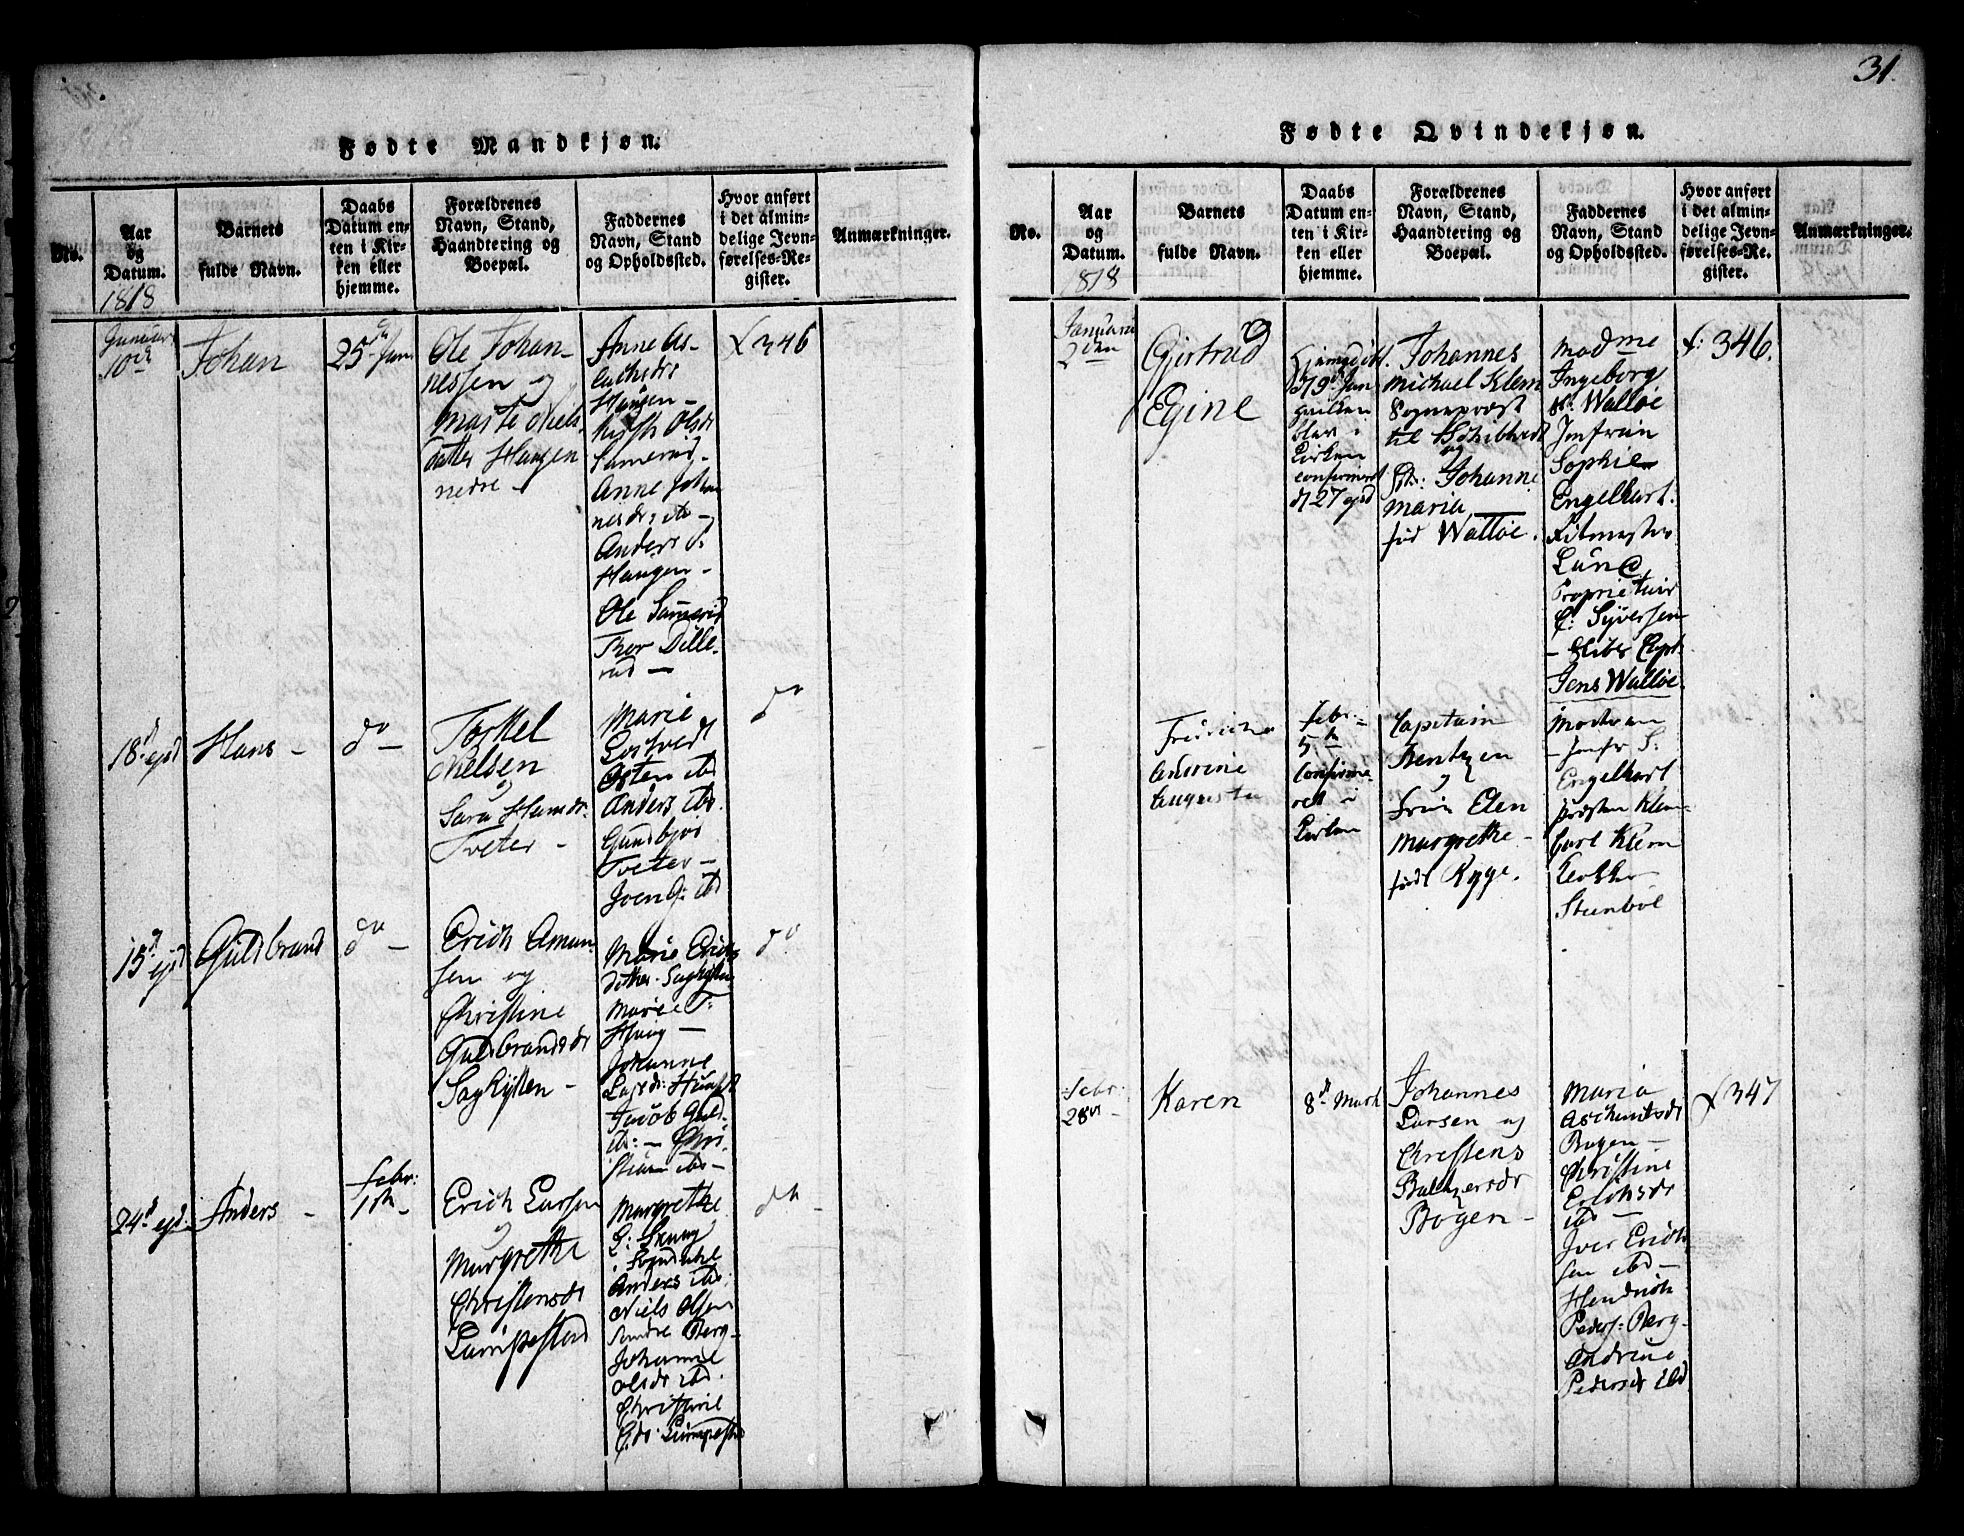 31.
Fødte Mandkjøn.
No.
Aar
og
Datum.
1818
Barnets
fulde Navn.
Daabs
Datum en-
ten i Kir-
ken eller
hjemme.
Forældrenes
Navn, Stand,
Haandtering og
Boepæl.
Faddernes
Navn, Stand
og Opholdssted.
Hvor anført
i det almin-
delige Jevn-
førelses-Re-
gister.
Anmærkninger.
Januar
10de
Johan
25de Jan
Ole Johan-
nessen og
Marte Niels
datter Haugen
nedre -
Anne As-
lachsdr
Haugen -
Kirsti Olsdr
Samerud.
Anne Johan
nesdr: ib -
Anders
Haugen -
Ole Samerud
Thor Dille-
rud -
346
18d ejsd
Hans -
do -
Torkel
Nielsen
og
Sara Hansdr.
Tveter -
Marie
LosTvedt
Osten ibd
Anders ibd.
Gundbjør
Tveter -
Joen G: ibd
do
15d ejsd
Guldbrand
do -
Erich Amun-
sen og
Christine
Guldbrandsdr
Saghytten -
Marie Erichs
datter Saghytten
Marie T:
Haug -
Johanne
Larsdr: Hunst
Jacob Guld
ib: - Chri
stian ibd -
do
24d ejsd.
Anders -
Febr:
1ste -
Erich Larsen
og
Margrethe
Christensdr
Lumpestad
Margrethe
L: Skaug
Anders ibd:
Niels Olsen
Søndre Berg -
Johanne
Olsdr ibd.
Christine
C:dr Lumpestad
do -
Fødte Qvindekjøn.
No.
Aar
og
Datum.
1818
Barnets
fulde Navn.
Daabs
Datum en-
ten i Kir-
ken eller
hjemme.
Forældrenes
Navn, Stand,
Haandtering og
Boepæl.
Faddernes
Navn, Stand
og Opholdssted.
Hvor anført
i det almin-
delige Jevn-
førelses-Re-
gister.
Anmærkninger.
Januari
2den
Gjertrud
Egine
Hjemmedøbt.
d 9d Jan
hvilken
blev i
Kirken
confirmert
d 27 ejsd
Johannes
Michael Klem
Sognepræst
til Schibtvedt
og
Fr: Johanne
Maria
fød Walløe.
Madme
Ingeborg
Walløe
Jmfruin
Sophie
Engelhart.
Ritmester
Lund
Proprietair
C: Syversen
- Skibs Capt
Jens Walløe.
f: 346.
Fredricha
Andrine
Augusta
Febr:
5te
Confirme-
ret i
Kirken
Capitain
Bentzen
og
Frue Elen
Margrethe -
født Rygge.
Moderen
- Jomfr S:
Engelhart
Præsten Klem
Carl Klem
Klokker
Steenbøl
Febr:
28de -
Karen
8d Marti
Johannes
Larsen og
Christens
Baltzersdr
Bogen -
Maria
Aschautsdr
Bogen -
Christine
Erichsdr
ibd -
Iver Erich
sen ibd -
Hendrich
Peders: Berg -
Andrine
Pedersdr ibd
f 347